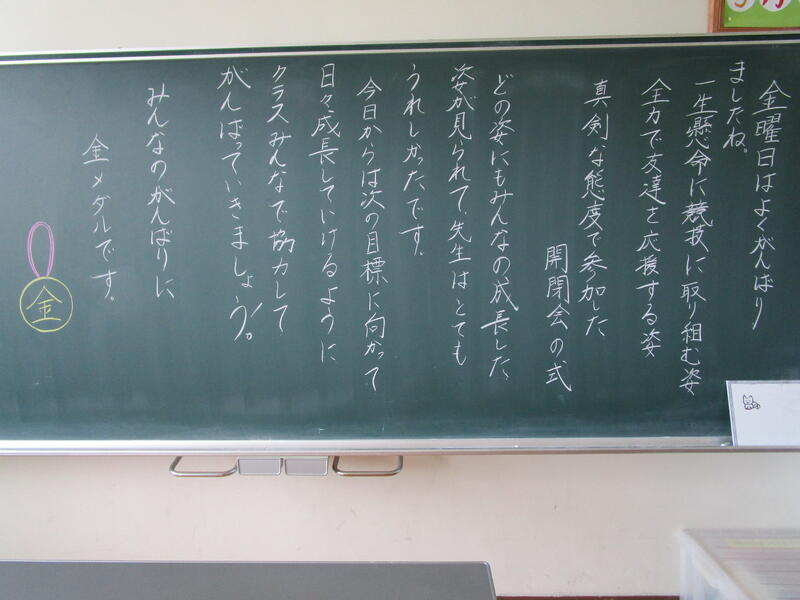 金曜日はよくがんばり
ましたね。
一生懸命に競技に取り組む姿
全力で友達を応援する姿
真剣な態度で参加した
開閉会の式
どの姿にもみんなの成長した
姿が見られて、先生はとても
うれしかったです。
今日からは次の目標に向かって
日々成長していけるように
クラスみんなで協力して
がんばっていきましょう!。
みんなのがんばりに
金メダルです。
金